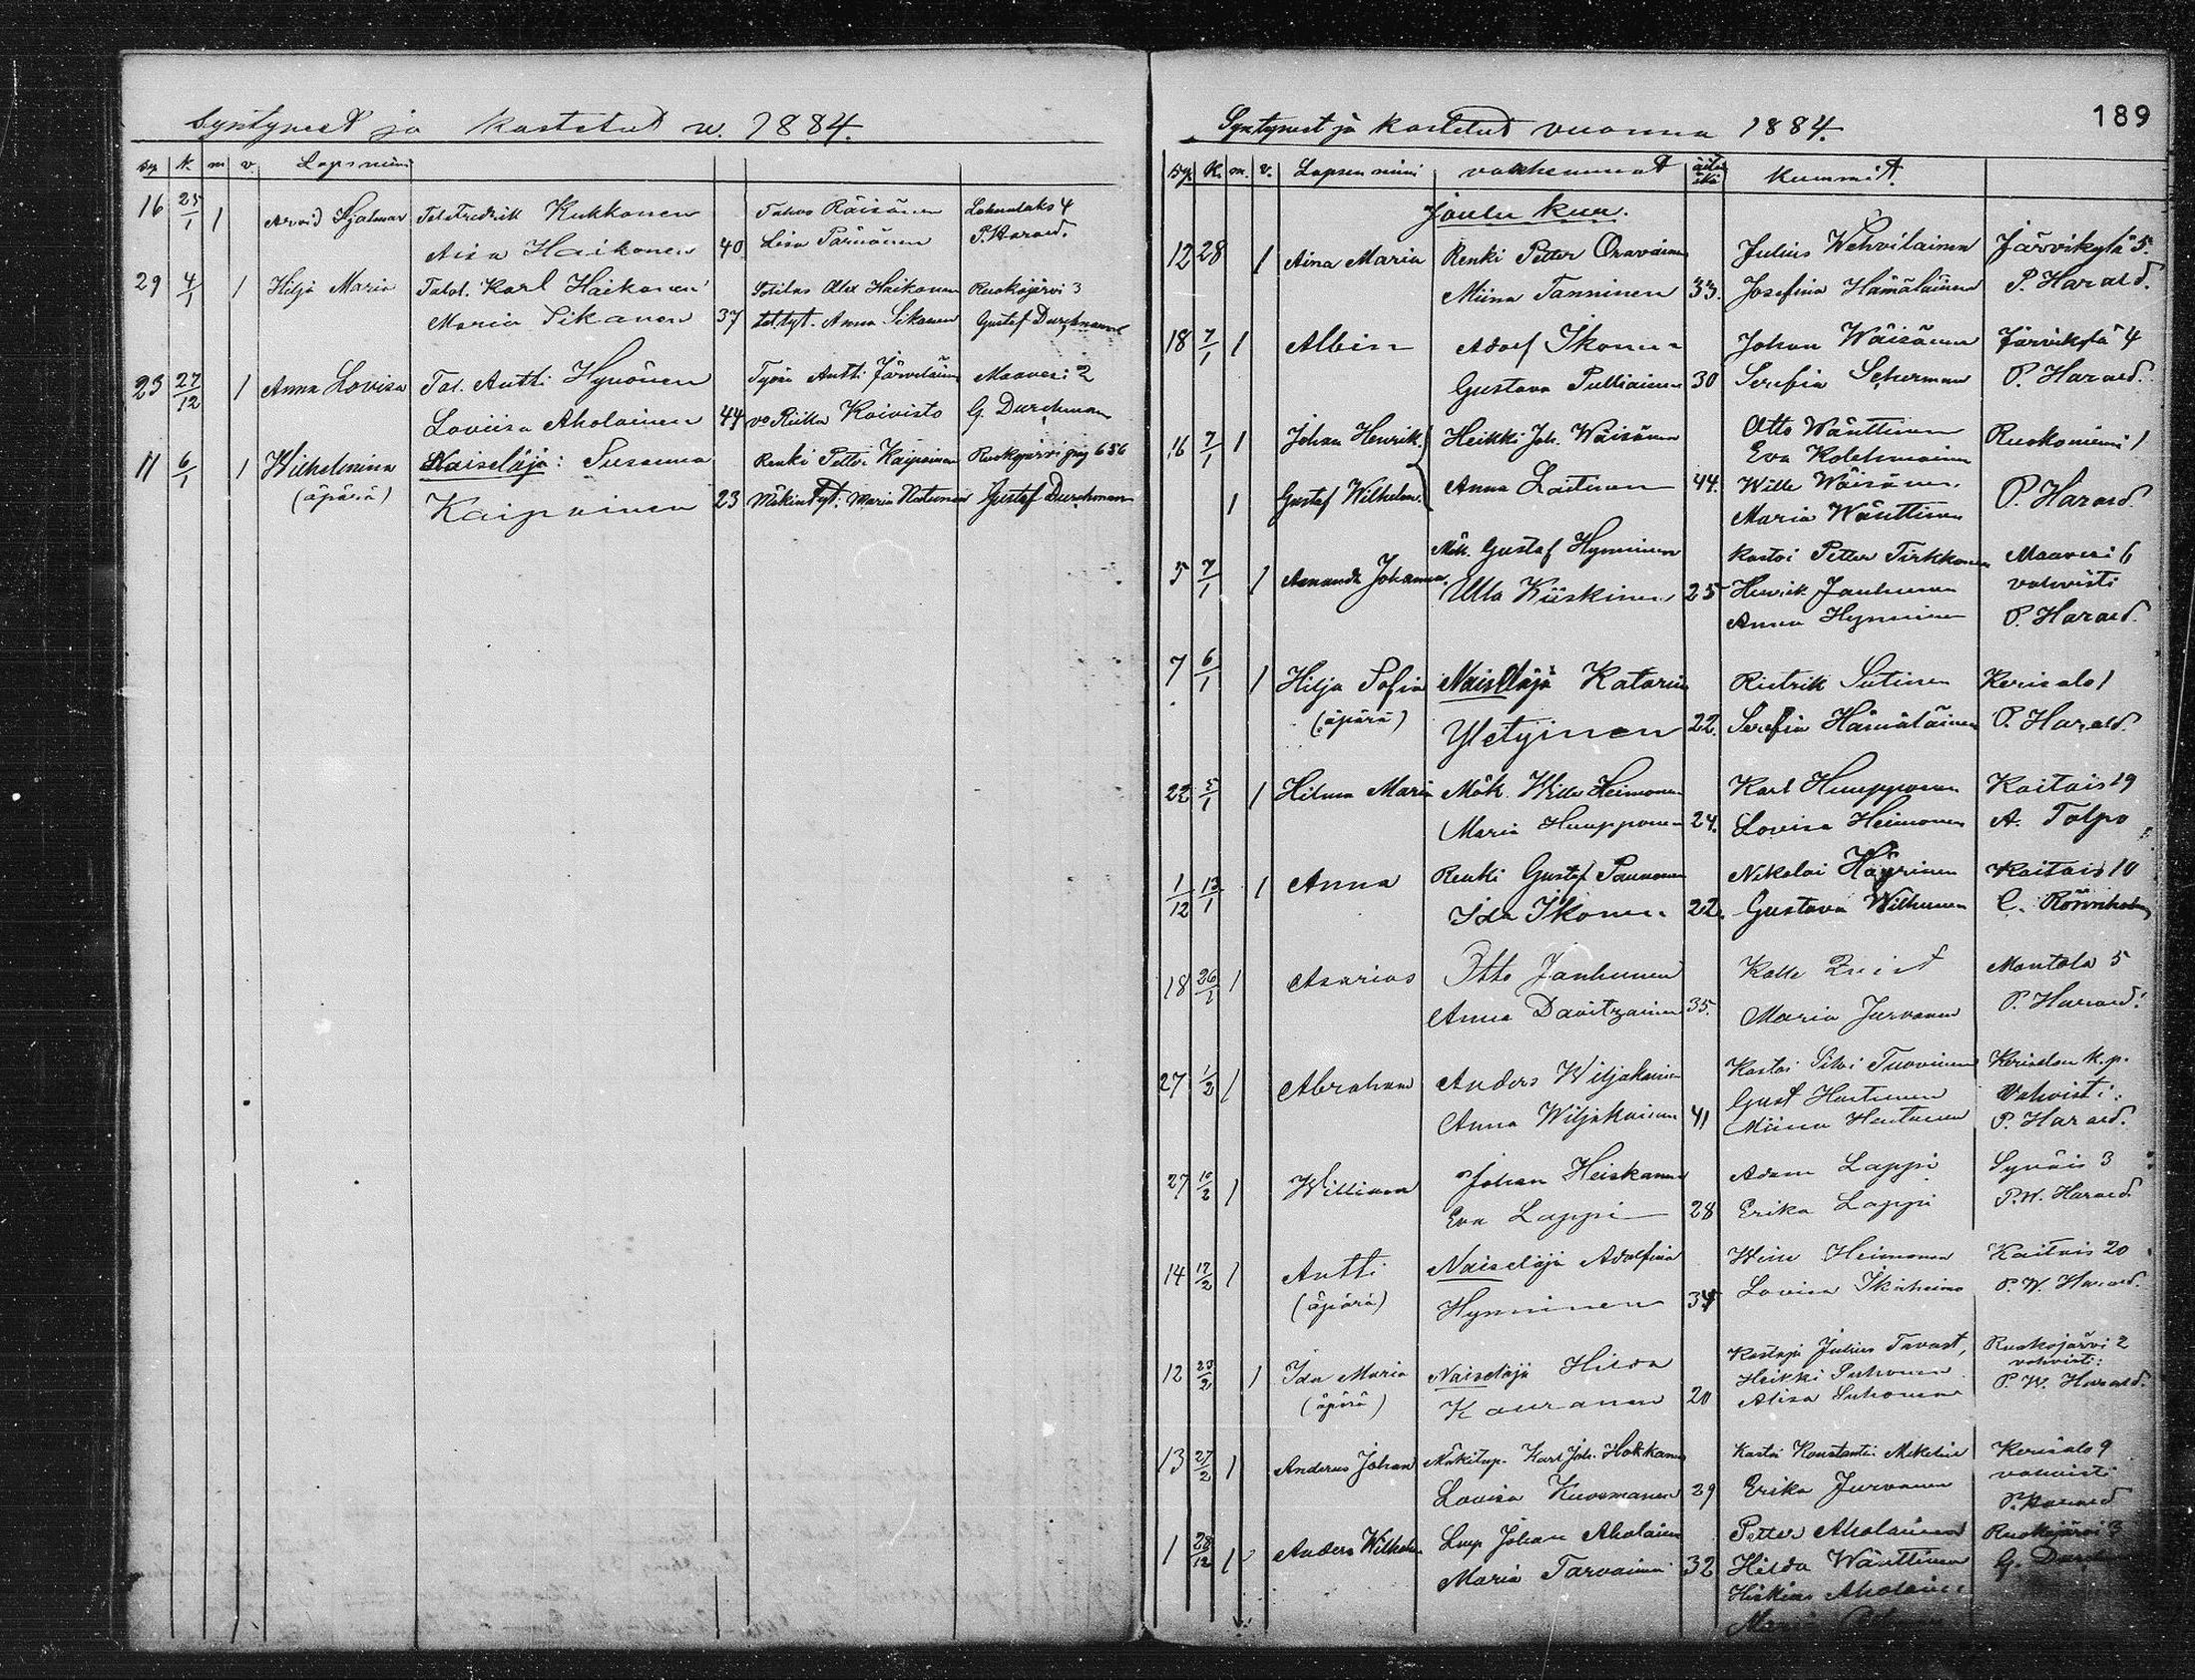 Syntyneet ja kastetut w. 1884.
Sy. K. m. v. Lapsnimi
16 25/1 1 Arvid Hjalmar Tal. Fredrik Kukkonen Tahvo Räisänen Lehmilaks 4
Aisa Haikonen 40 Lisa Parnänen P. Harald.
29 4/1 1 Hilja Maria Talol. Karl Haikonen Sotilas Alex Haikonen Ruokojärvi 3
Maria Sikanen 37 tal. tyt. Anna Sikanen Gustaf Durchman
23 27/12 1 Anna Lovisa Tal. Antti Hynönen Työm Antti Järveläinen Maavesi 2
Loviisa Aholainen 44 vo Riikka Koivisto G. Durchman
11 6/1 1 Wilhelmina Naiseläjä: Susanna Renki Petter Kaipainen Ruokojärvi 656
(äpärä) Kaipainen 23 Mäkitup. tyt. Maria Gustaf Durchman
189
Syntyneet ja kastetut vuonna 1884.
Sy. K. m. v. Lapsen nimi vanhemmat äitin ikä Kummit.
Joulu kuu.
12 28 1 Aina Maria Renki Petter Oravainen Julius Wehviläinen Järvikylä 5.
Miina Tanninen 33. Josefina Hämäläinen P. Harald.
18 7/1 1 Albin Adolf Ikonen Johan Wäisänen Järvikylä 4
Gustava Pulliainen 30 Serefia Scherman P. Harald.
16 7/1 1 Johan Henrik Heikki Joh. Wäisänen Otto Wänttinen Ruokoniemi 1
Eva Kolehmainen
1 Gustaf Wilhelm. Anna Laitinen 44. Wille Wäisänen. P. Harald.
Maria Wänttinen
Mök. Gustaf Hynninen Kastoi Petter Tirkkonen Maavesi 6
5 7/1 1 Amanda Johanna. Ulla Kiiskinen 25 Henrik Janhunen vahvisti
Anna Hynninen P. Harald.
7 6/1 1 Hilja Sofia Naiseläjä Katarina Rietrik Sutinen Kerisalo 1
(äpärä) Yletyinen 22. Serefia Hämäläinen P. Harald.
22 5/1 1 Hilma Maria Mök. Wille Heimonen Karl Humpponen Kaitais 19
Maria Humpponen 24. Lovisa Heimonen A. Tolpo
1/12 13/1 1 Anna Renki Gustaf Paunonen Nikolai Häyrinen Kaitais 10
Ida Ikonen 22. Gustava Wilhunen C. Rönnholm
18 26/1 1 Asarias Otto Janhunen Kalle Quist Montola 5
Anna Davitzainen 35. Maria Jurvanen P. Harald.
27 1/2 1 Abraham Anders Wiljakainen Kastoi Silvi Tuovinen Kerisalon k.p.
Gust Hartunen Vahvisti:
Anna Wiljakainen 41 Miina Hartunen P. Harald.
27 10/2 1 William Johan Heiskanen Adam Lappi Synöis 3
Eva Lappi 28 Erika Lappi P. W. Harald
14 17/2 1 Antti Naiseläjä Adolfina Wille Heimonen Kaitais 20
(äpärä) Hynninen 34 Lovisa Ikäheimo P. W. Harald.
12 23/2 1 Ida Maria Naiseläjä Hilda Kastaja Julius Tavast, Ruokojärvi 2
Heikki Puhonen vahvisti:
(äpärä) Kauranen 20 Alisa Suhonen P. W. Harald.
13 27/2 1 Anderus Johan Mäkitup. Karl Joh. Hokkanen Kastoi Konstantin Mikelin Kerisalo 9
Lovisa Kuosmanen 29 Erika Jurvanen vahvisti
P. Harald
1 28/12 1 Anders Wilhelm Lup Johan Aholainen Petter Aholainen Ruokojärvi 3
Maria Tarvainen 32 Hilda Wänttinen G.
Hiskias Aholainen